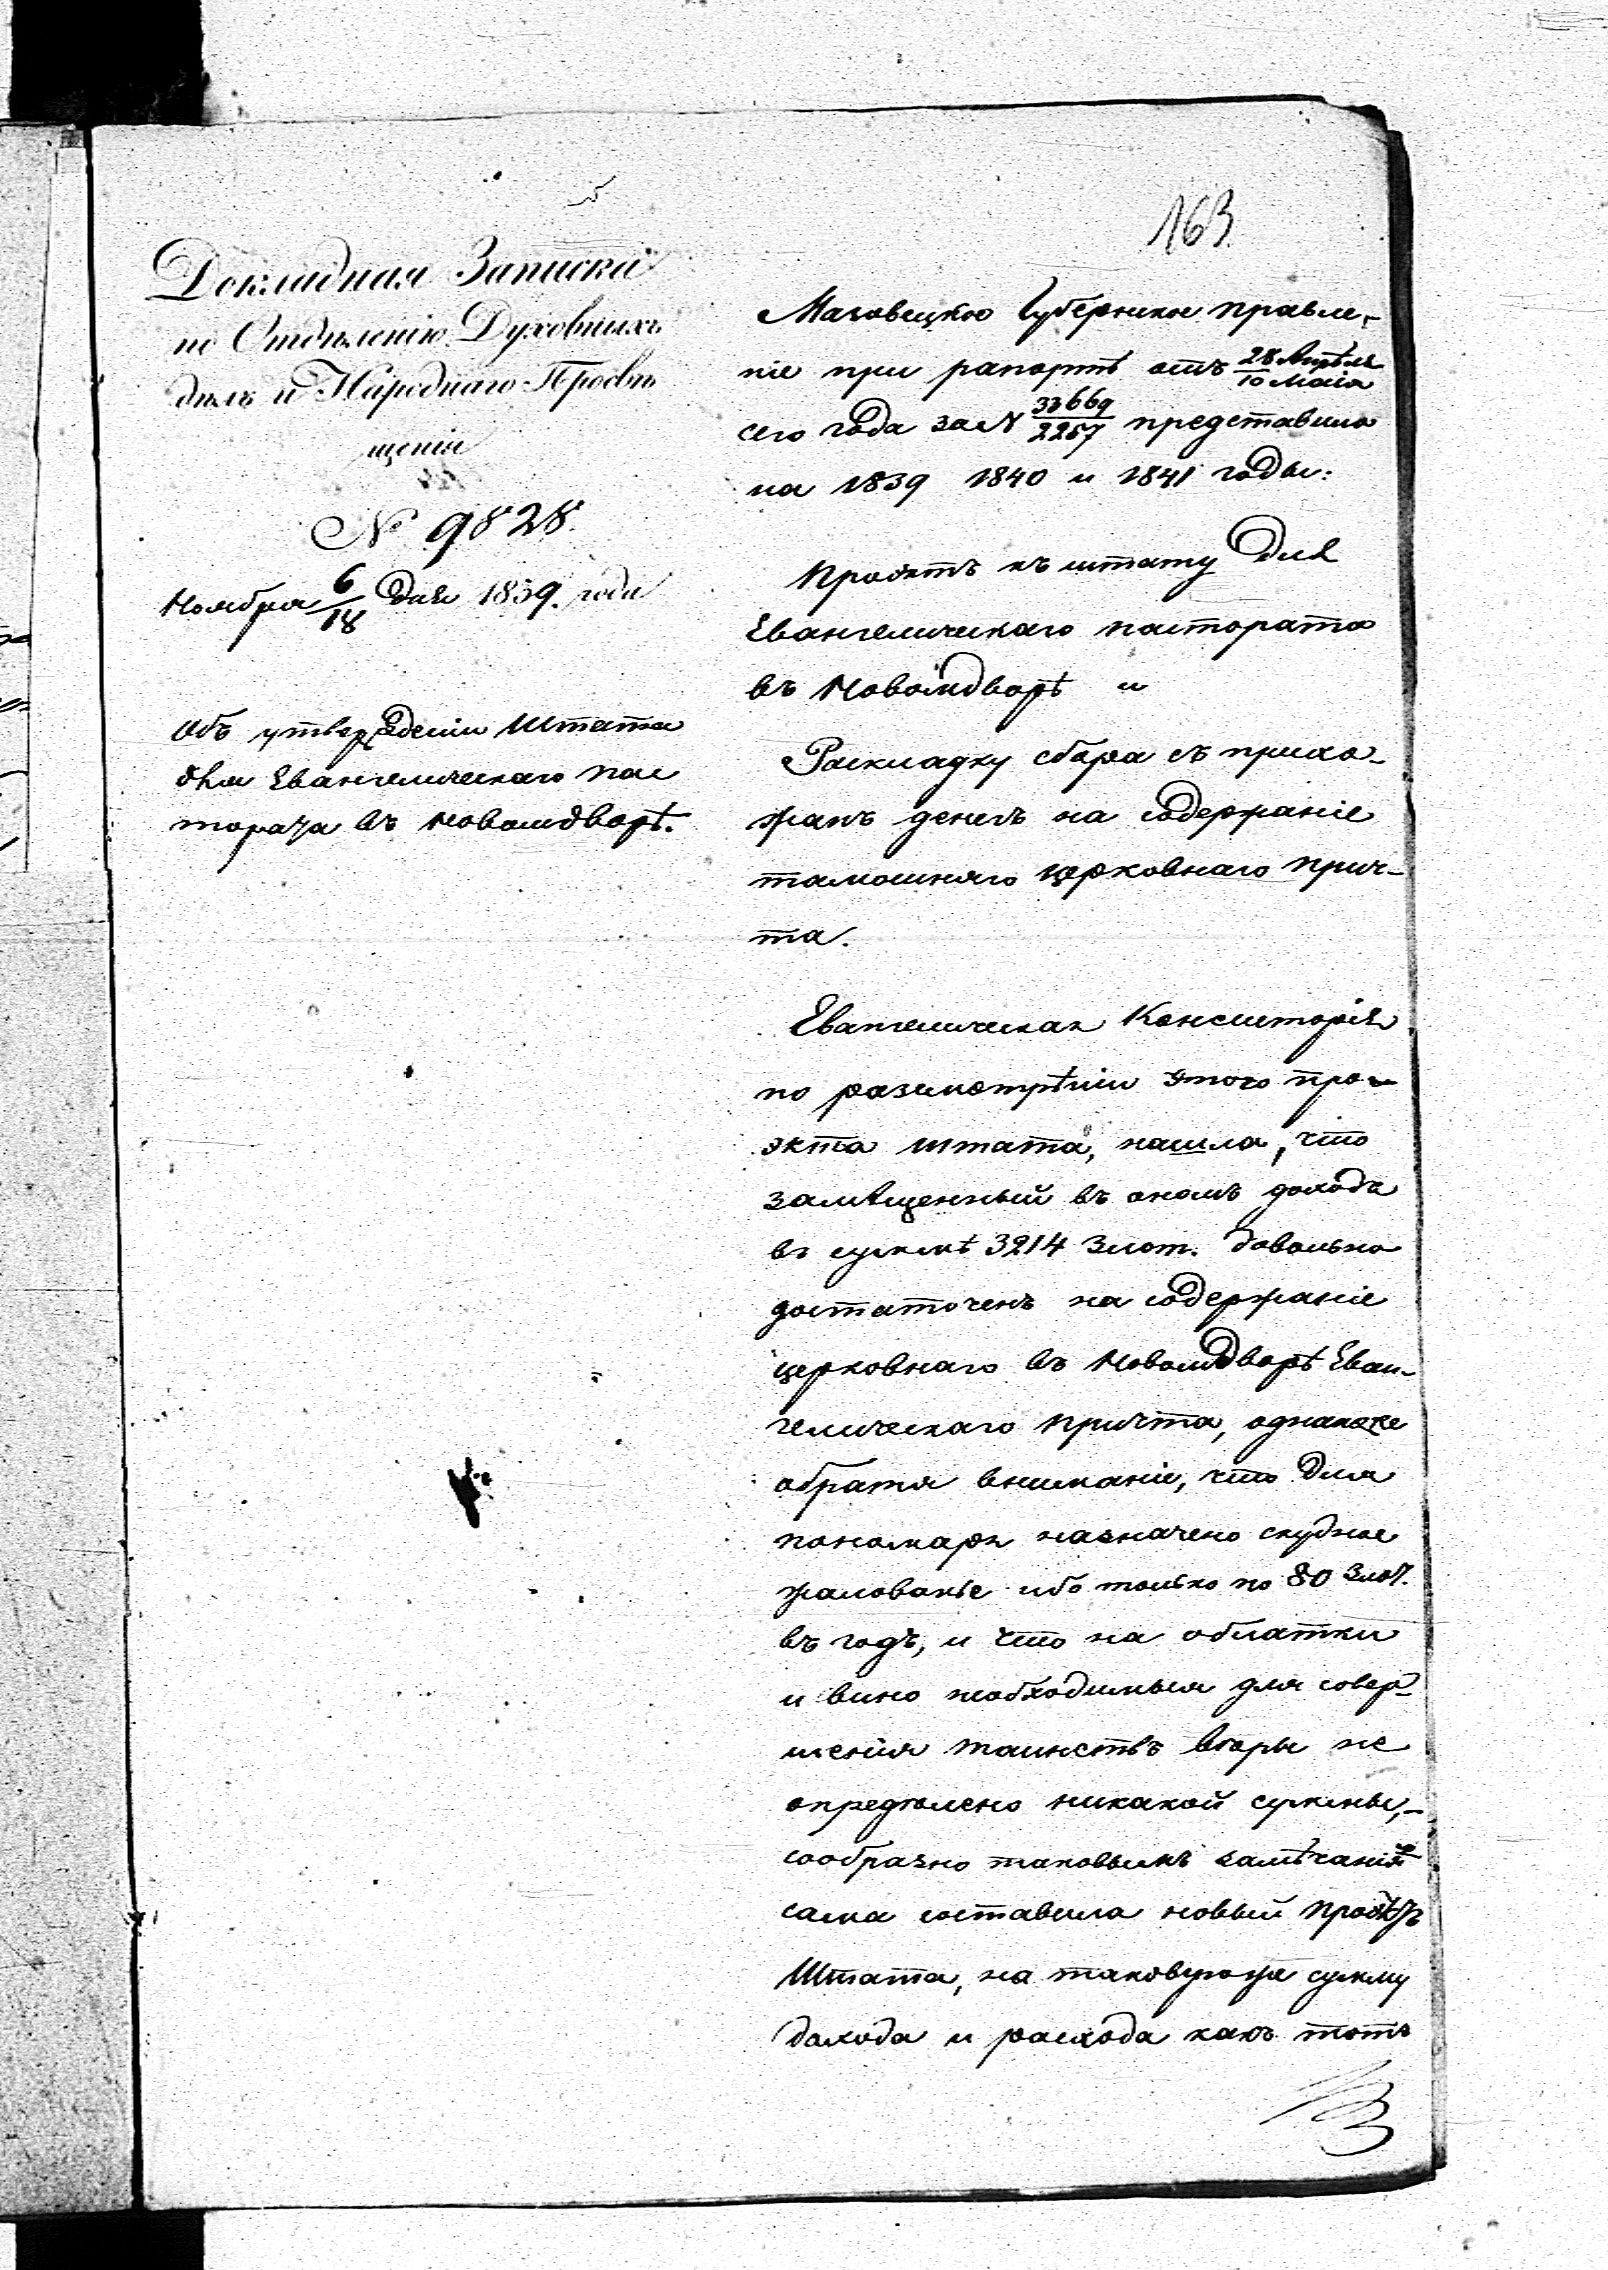 163
Докладная Записка
по Отдѣленію Духовныхъ
дѣлъ и Народнаго Просвѣ
щенія
№ 9828.
Ноября 6/18 дня 1839. года
Объ утвержденіи Штата
для Евангелическаго пас
тората въ Новомдворѣ.
Мазовецкое Губернское правле-
ніе при рапортѣ отъ 28 Апрѣля/10 Маія
сего года за № 33669/2257 представило
на 1839 1840 и 1841 годы:
Проэктъ къ штату для
Евангелическаго пастората
въ Новомдворѣ и
Раскладку сбора съ прихо-
жанъ денегъ на содержаніе
тамошняго церковнаго прич-
та.
Евангелическая Консисторія
по разсмотрѣніи этого про-
экта штата, нашла, что
замѣщенный въ ономъ доходъ
въ суммѣ 3214 Злот. довольно
достаточенъ на содержаніе
церковнаго въ Новомдворѣ Еван-
гелическаго причта, однакоже
обратя вниманіе, что для
пономаря назначено скудное
жалованье ибо только по 80 Злот.
въ годъ, и что на облатки
и вино необходимыя для совер-
шенія таинствъ вѣры не
опредѣлено никакой суммы,-
сообразно таковымъ замѣчаніямъ
сама составила новый проэктъ
Штата, на таковуюже сумму
дохода и расхода какъ тотъ